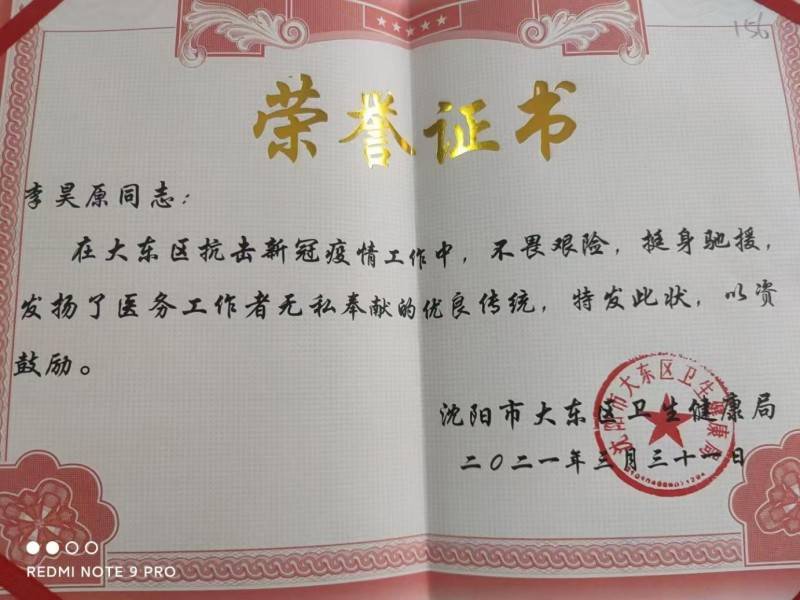 156
荣誉证书
李昊原同志：
在大东区抗击新冠疫情工作中，不畏艰险，挺身驰援，
发扬了医务工作者无私奉献的优良传统，特发此状，以资
鼓励。
沈阳市大东区卫生健康局
二〇二一年三月三十一日
沈阳市大东区卫生健康局
REDMI NOTE 9 PRO